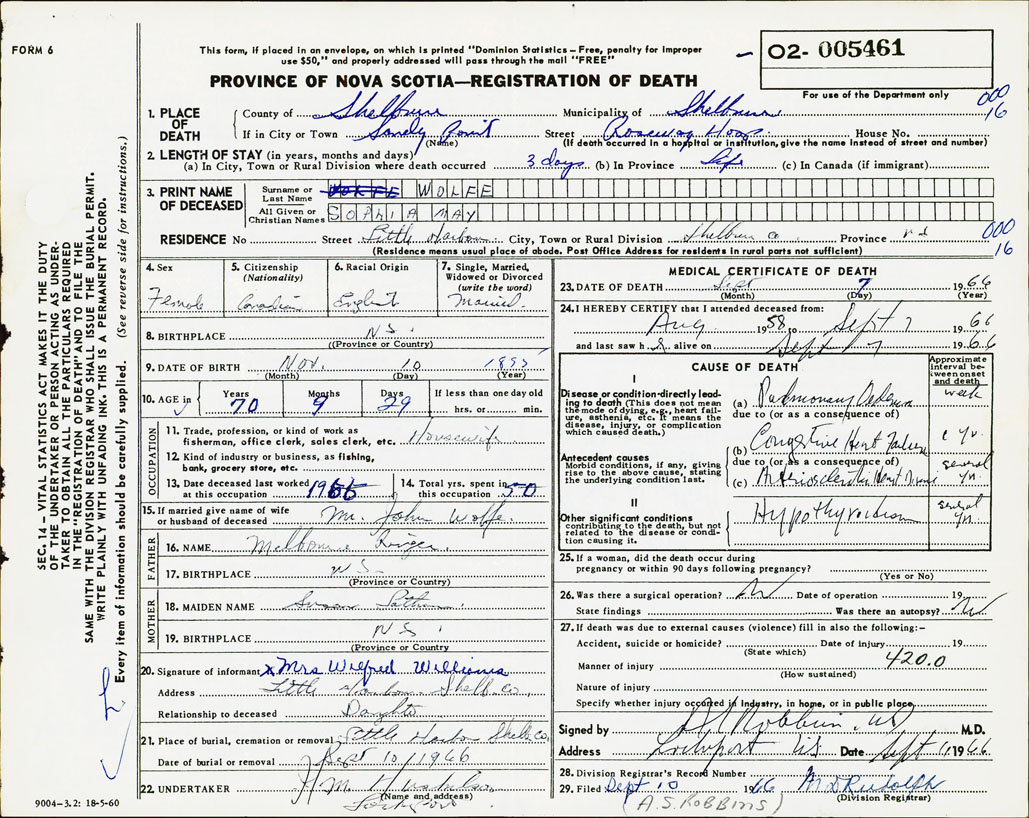 FORM 6
This form, if placed in an envelope, on which is printed "Dominion Statistics – Free, penalty for improper
use $50," and properly addressed will pass through the mail "FREE"
PROVINCE OF NOVA SCOTIA—REGISTRATION OF DEATH
02- 005461
For use of the Department only
000
16
1. PLACE OF DEATH
County of Shelburne Municipality of Shelburne
If in City or Town Sandy Point Street Roseway Hosp. House No.
(Name) (If death occurred in a hospital or institution, give the name instead of street and number)
2. LENGTH OF STAY (in years, months and days)
(a) In City, Town or Rural Division where death occurred 3 days (b) In Province life (c) In Canada (if immigrant)
3. PRINT NAME OF DECEASED
Surname or Last Name WOLFE
All Given or Christian Names SOPHIA MAY
RESIDENCE No Street Little Harbour City, Town or Rural Division Shelburne Co Province
(Residence means usual place of abode. Post Office Address for residents in rural parts not sufficient)
000
16
4. Sex
Female
5. Citizenship
(Nationality)
Canadian
6. Racial Origin
English
7. Single, Married,
Widowed or Divorced
(write the word)
Married.
8. BIRTHPLACE N.S.
((Province or Country)
9. DATE OF BIRTH Nov. 10 1895
(Month) (Day) (Year)
10. AGE in
Years Months Days If less than one day old
70 9 29 hrs. or min.
OCCUPATION
11. Trade, profession, or kind of work as
fisherman, office clerk, sales clerk, etc. Housewife
12. Kind of industry or business, as fishing,
bank, grocery store, etc.
13. Date deceased last worked
at this occupation 1966
14. Total yrs. spent in
this occupation 50
15. If married give name of wife
or husband of deceased Mr. John Wolfe.
FATHER
16. NAME Melbourne
17. BIRTHPLACE N.S.
(Province or Country)
MOTHER
18. MAIDEN NAME Susan
19. BIRTHPLACE N.S.
(Province or Country
20. Signature of informant x Mrs Wilfred Williams
Address Little Harbour Shelb Co.
Relationship to deceased Daughter
21. Place of burial, cremation or removal Little Harbour Shelb Co.
Date of burial or removal Sept 10/1966
22. UNDERTAKER
(Name and address)
Lockeport
9004-3.2: 18-5-60
MEDICAL CERTIFICATE OF DEATH
23. DATE OF DEATH Sept 7 1966
(Month) (Day) (Year)
24. I HEREBY CERTIFY that I attended deceased from:
Aug. 1958 to Sept 7 1966
and last saw h alive on Sept 7 1966
CAUSE OF DEATH
Approximate interval be-tween onset and death
I
Disease or condition directly lead-
ing to death (This does not mean
the mode of dying, e.g., heart fail-
ure, asthenia, etc. It means the
disease, injury, or complication
which caused death.)
(a) Pulmonary Oedema week
due to (or as a consequence of)
(b) Congestive Heart Failure yr.
Antecedent causes
Morbid conditions, if any, giving
rise to the above cause, stating
the underlying condition last.
due to (or as a consequence of)
(c) Arteriosclerotic Heart Disease several yr.
II
Other significant conditions
contributing to the death, but not
related to the disease or condi-
tion causing it.
Hypothyroidism several yr.
25. If a woman, did the death occur during
pregnancy or within 90 days following pregnancy?
(Yes or No)
26. Was there a surgical operation? No Date of operation 19
State findings Was there an autopsy? No
27. If death was due to external causes (violence) fill in also the following:–
Accident, suicide or homicide? Date of injury 19
(State which)
Manner of injury 420.0
(How sustained)
Nature of injury
Specify whether injury occurred in industry, in home, or in public place
Signed by Robbins MD M.D.
Address Lockeport N.S. Date Sept 1966
28. Division Registrar's Record Number
29. Filed Sept 10 1966 M D Rudolph
(Division Registrar)
(A.S. ROBBINS)
SEC. 14 – VITAL STATISTICS ACT MAKES IT THE DUTY
OF THE UNDERTAKER OR PERSON ACTING AS UNDER-
TAKER TO OBTAIN ALL THE PARTICULARS REQUIRED
IN THE "REGISTRATION OF DEATH" AND TO FILE THE
SAME WITH THE DIVISION REGISTRAR WHO SHALL ISSUE THE BURIAL PERMIT.
WRITE PLAINLY WITH UNFADING INK. THIS IS A PERMANENT RECORD.
Every item of information should be carefully supplied. (See reverse side for instructions.)